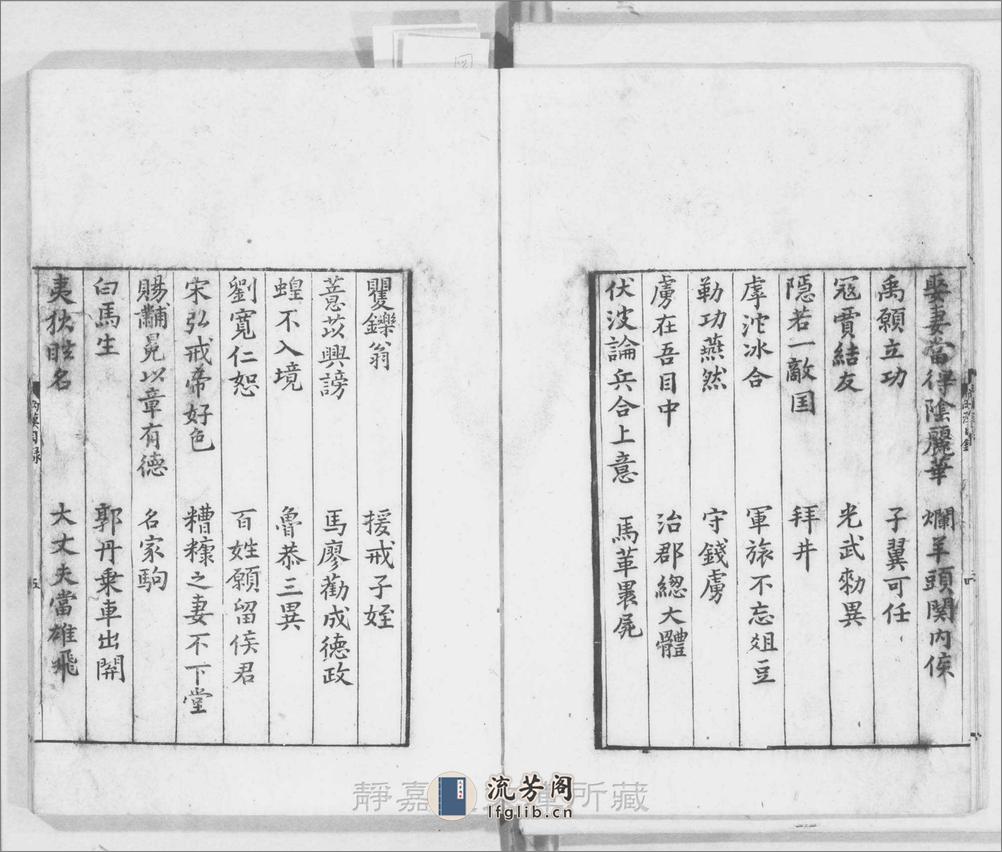 娶妻當得陰麗華　爛羊頭関内侯
禹願立功　子翼可任
冦賈結友　光武勑異
隱若一敵国　拜井
虖沱冰合　軍旅不忘俎豆
勒功燕然　守錢虜
虜在吾目中　治郡總大體
伏波論兵合上意　馬革裹屍
矍鑠翁　援戒子姪
薏苡興謗　馬廖勸成德政
蝗不入境　魯恭三異
劉寬仁恕　百姓願留侯君
宋弘戒帝好色　糟糠之妻不下堂
賜黼冕以章有德　名家駒
白馬生　郭丹乗車出關
夷狄名　大丈夫當雄飛
兩漢目録
五
靜嘉 所藏
流芳阁
lfglib.cn